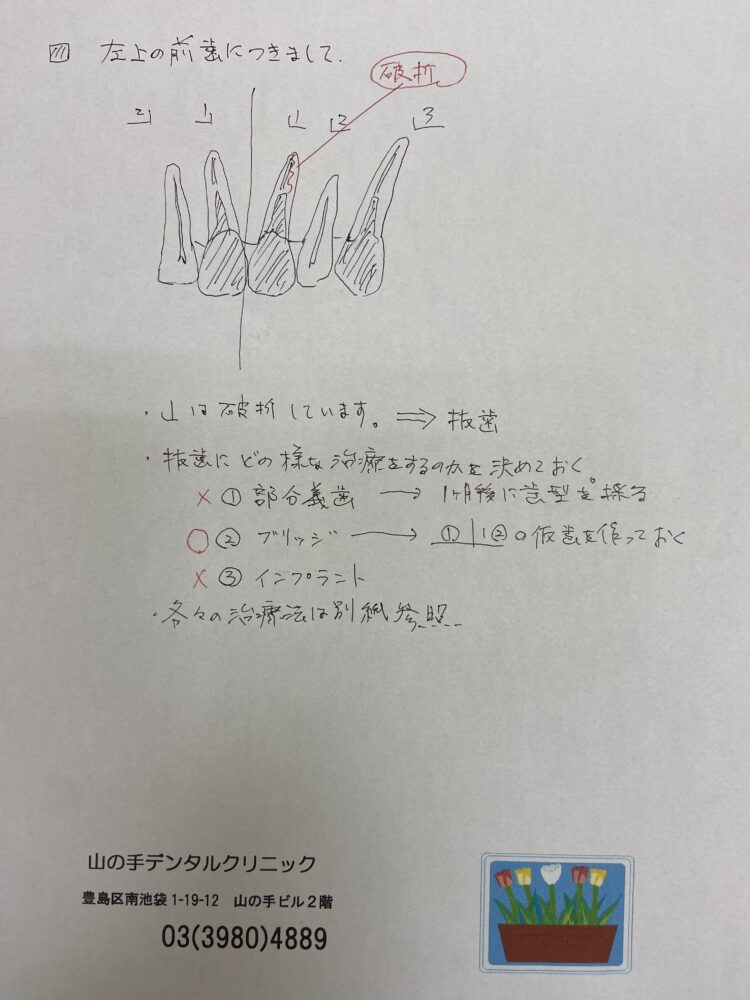 左上の前歯につきまして.
破折
2 1 1 2 3
・1は破折しています。⇒ 抜歯
・抜歯にどの様な治療をするのかを決めておく。
× ① 部分義歯 → 1ヶ月後に歯型を採る
○ ② ブリッジ → ①|1②の仮歯を作っておく
× ③ インプラント
・各々の治療法は別紙参照
山の手デンタルクリニック
豊島区南池袋1-19-12 山の手ビル2階
03(3980)4889